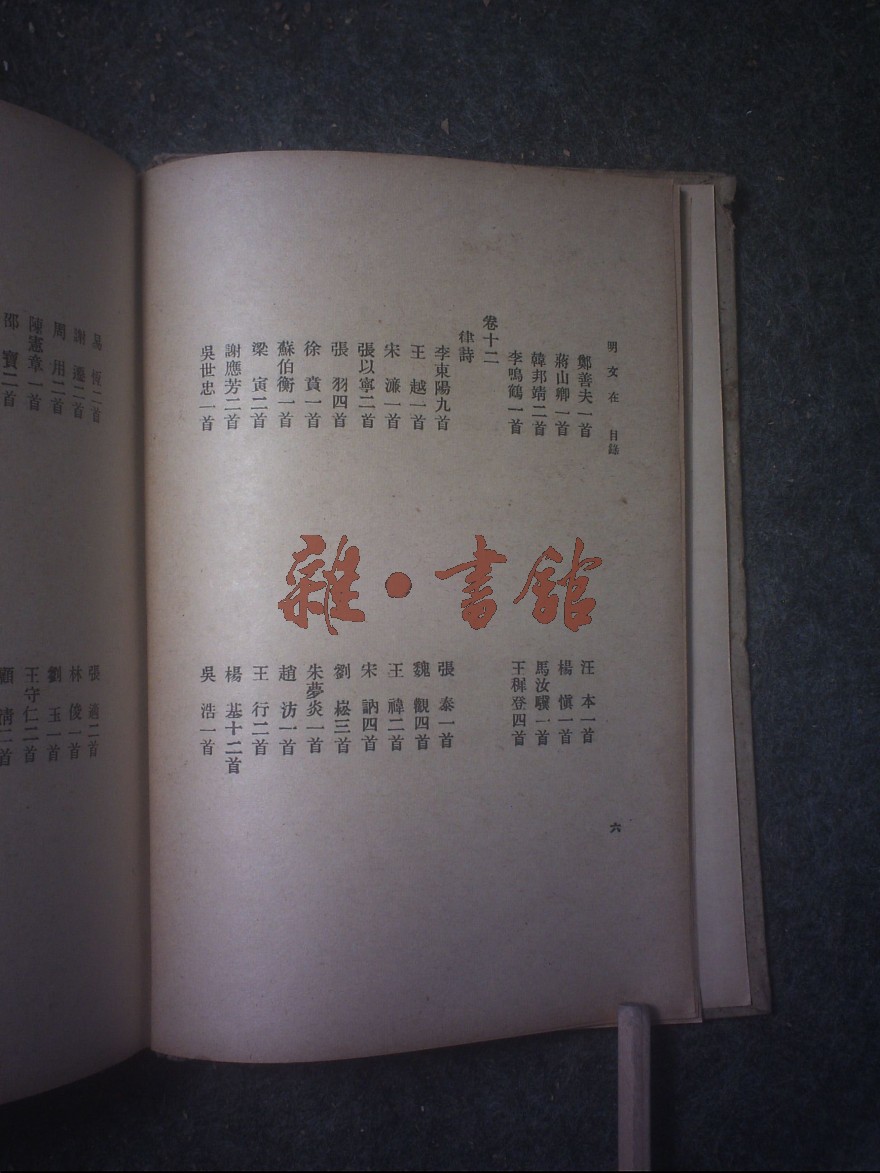 明文在 目錄
六
鄭善夫一首
汪本一首
蔣山卿一首
楊愼一首
韓邦靖二首
馬汝驥一首
李鳴鶴一首
王穉登四首
卷十二
律詩
李東陽九首
張泰一首
王越一首
魏觀四首
宋濂一首
王褘二首
張以寧二首
宋訥四首
張羽四首
劉崧三首
徐賁一首
朱夢炎一首
蘇伯衡一首
趙汸一首
梁寅二首
王行二首
謝應芳二首
楊基十二首
吳世忠一首
吳浩一首
恆二首
張適二首
謝遷二首
林俊一首
周用二首
劉玉一首
陳憲章一首
王守仁二首
邵寶二首
顧清二首
雜·書館